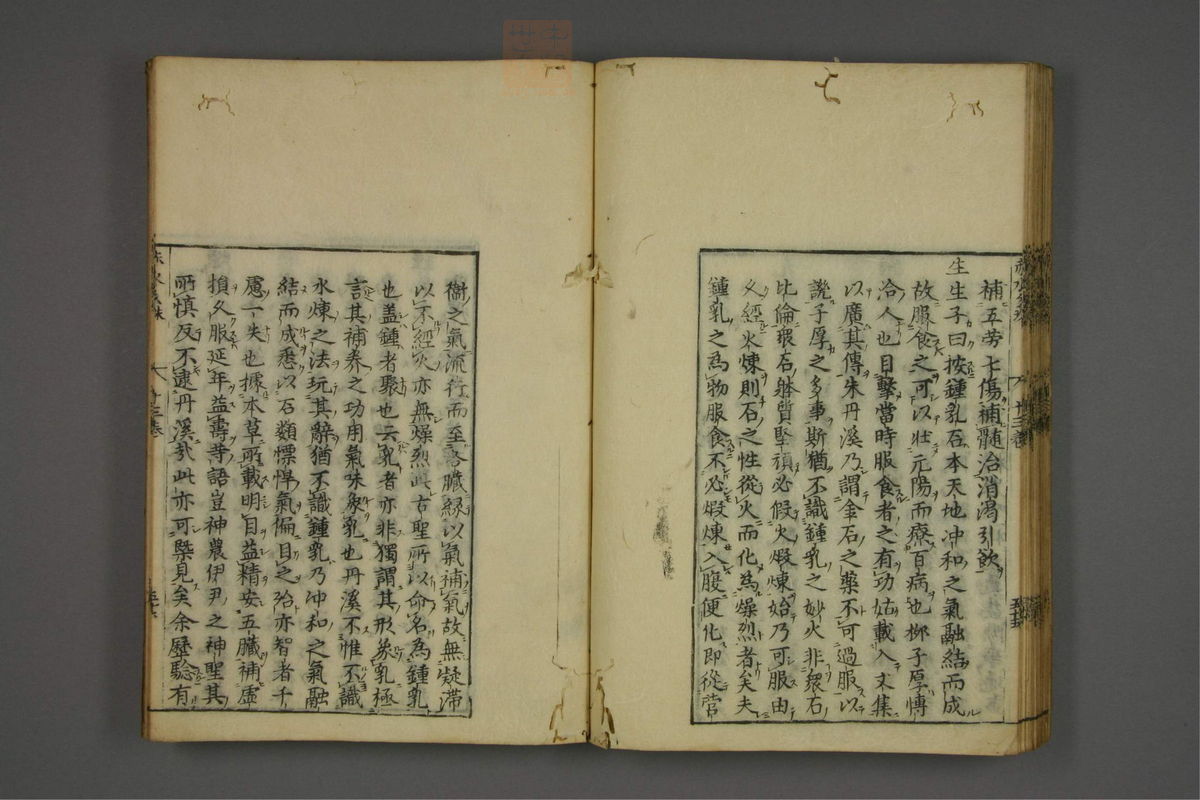 補五劳七傷補髄治消渇引飲
生生子曰按鍾乳石本天地冲和之氣融結而成
故服食之可以壮元陽而療百病也柳子厚慱
洽人也目擊當時服食者之有功姑載入文集
以廣其傳朱丹溪乃謂金石之薬不可過服以
譏子厚之多事斯猶不識鍾乳之妙火非衆石
比倫衆石躰質堅頑必假火煆煉始乃可服由
火經火煉則石之性從火而化為燥烈者矣夫
鍾乳之為物服食不必煆煉入腹便化即從営
衛之氣流行而至各臓緑以氣補氣故無凝滞
以不經火亦無燥烈此古聖所以命名為鍾乳
也盖鍾者聚也云乳者亦非獨謂其形象乳極
言其補养之功用氣味象乳也丹溪不惟不識
水煉之法玩其辭猶不識鍾乳乃冲和之氣融
結而成悉以石類慓悍氣偏目之殆亦智者千
慮一失也據本草所載明目益精安五臓補虚
損久服延年益壽等語豈神農伊尹之神聖其
所慎反不逮丹溪㢤此亦可槩見矣余歷驗有